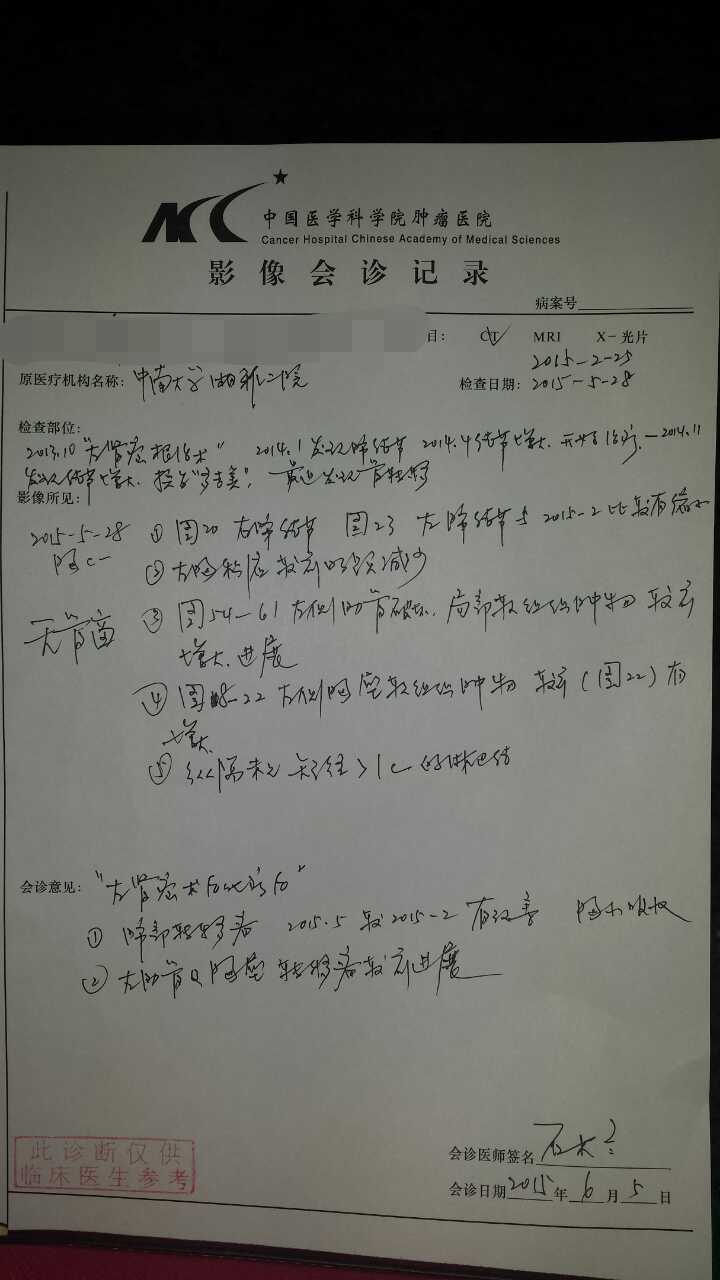 中国医学科学院肿瘤医院
Cancer Hospital Chinese Academy of Medical Sciences
影像会诊记录
病案号
目： CT√ MRI X-光片
原医疗机构名称：中南大学湘雅二院
2015-2-25
检查日期：2015-5-28
检查部位：
2013.10 "左肾癌根治术" 2014.1发现肺结节 2014.4结节增大、开始治疗、—2014.11
发现结节增大、 "多吉美"， 最近发现骨转移
影像所见：
2015-5-28
胸C-
无骨窗
① 图20 右肺结节 图23 左肺结节与2015-2比较有缩小
② 左胸积液较前明显减少
③ 图54-61 左侧肋骨破坏、局部软组织肿物 较前
增大、进展
④ 图 -22 左侧胸壁软组织肿物 较前（图22）有
增大、
⑤ 纵隔未见短径>1c 的淋巴结
会诊意见："左肾癌术后化疗后"
① 肺部转移者 2015.5较2015-2有改善 胸水吸收
② 左肋骨及胸壁转移者较前进展
此诊断仅供
临床医生参考
会诊医师签名 石木
会诊日期 2015年 6月 5日